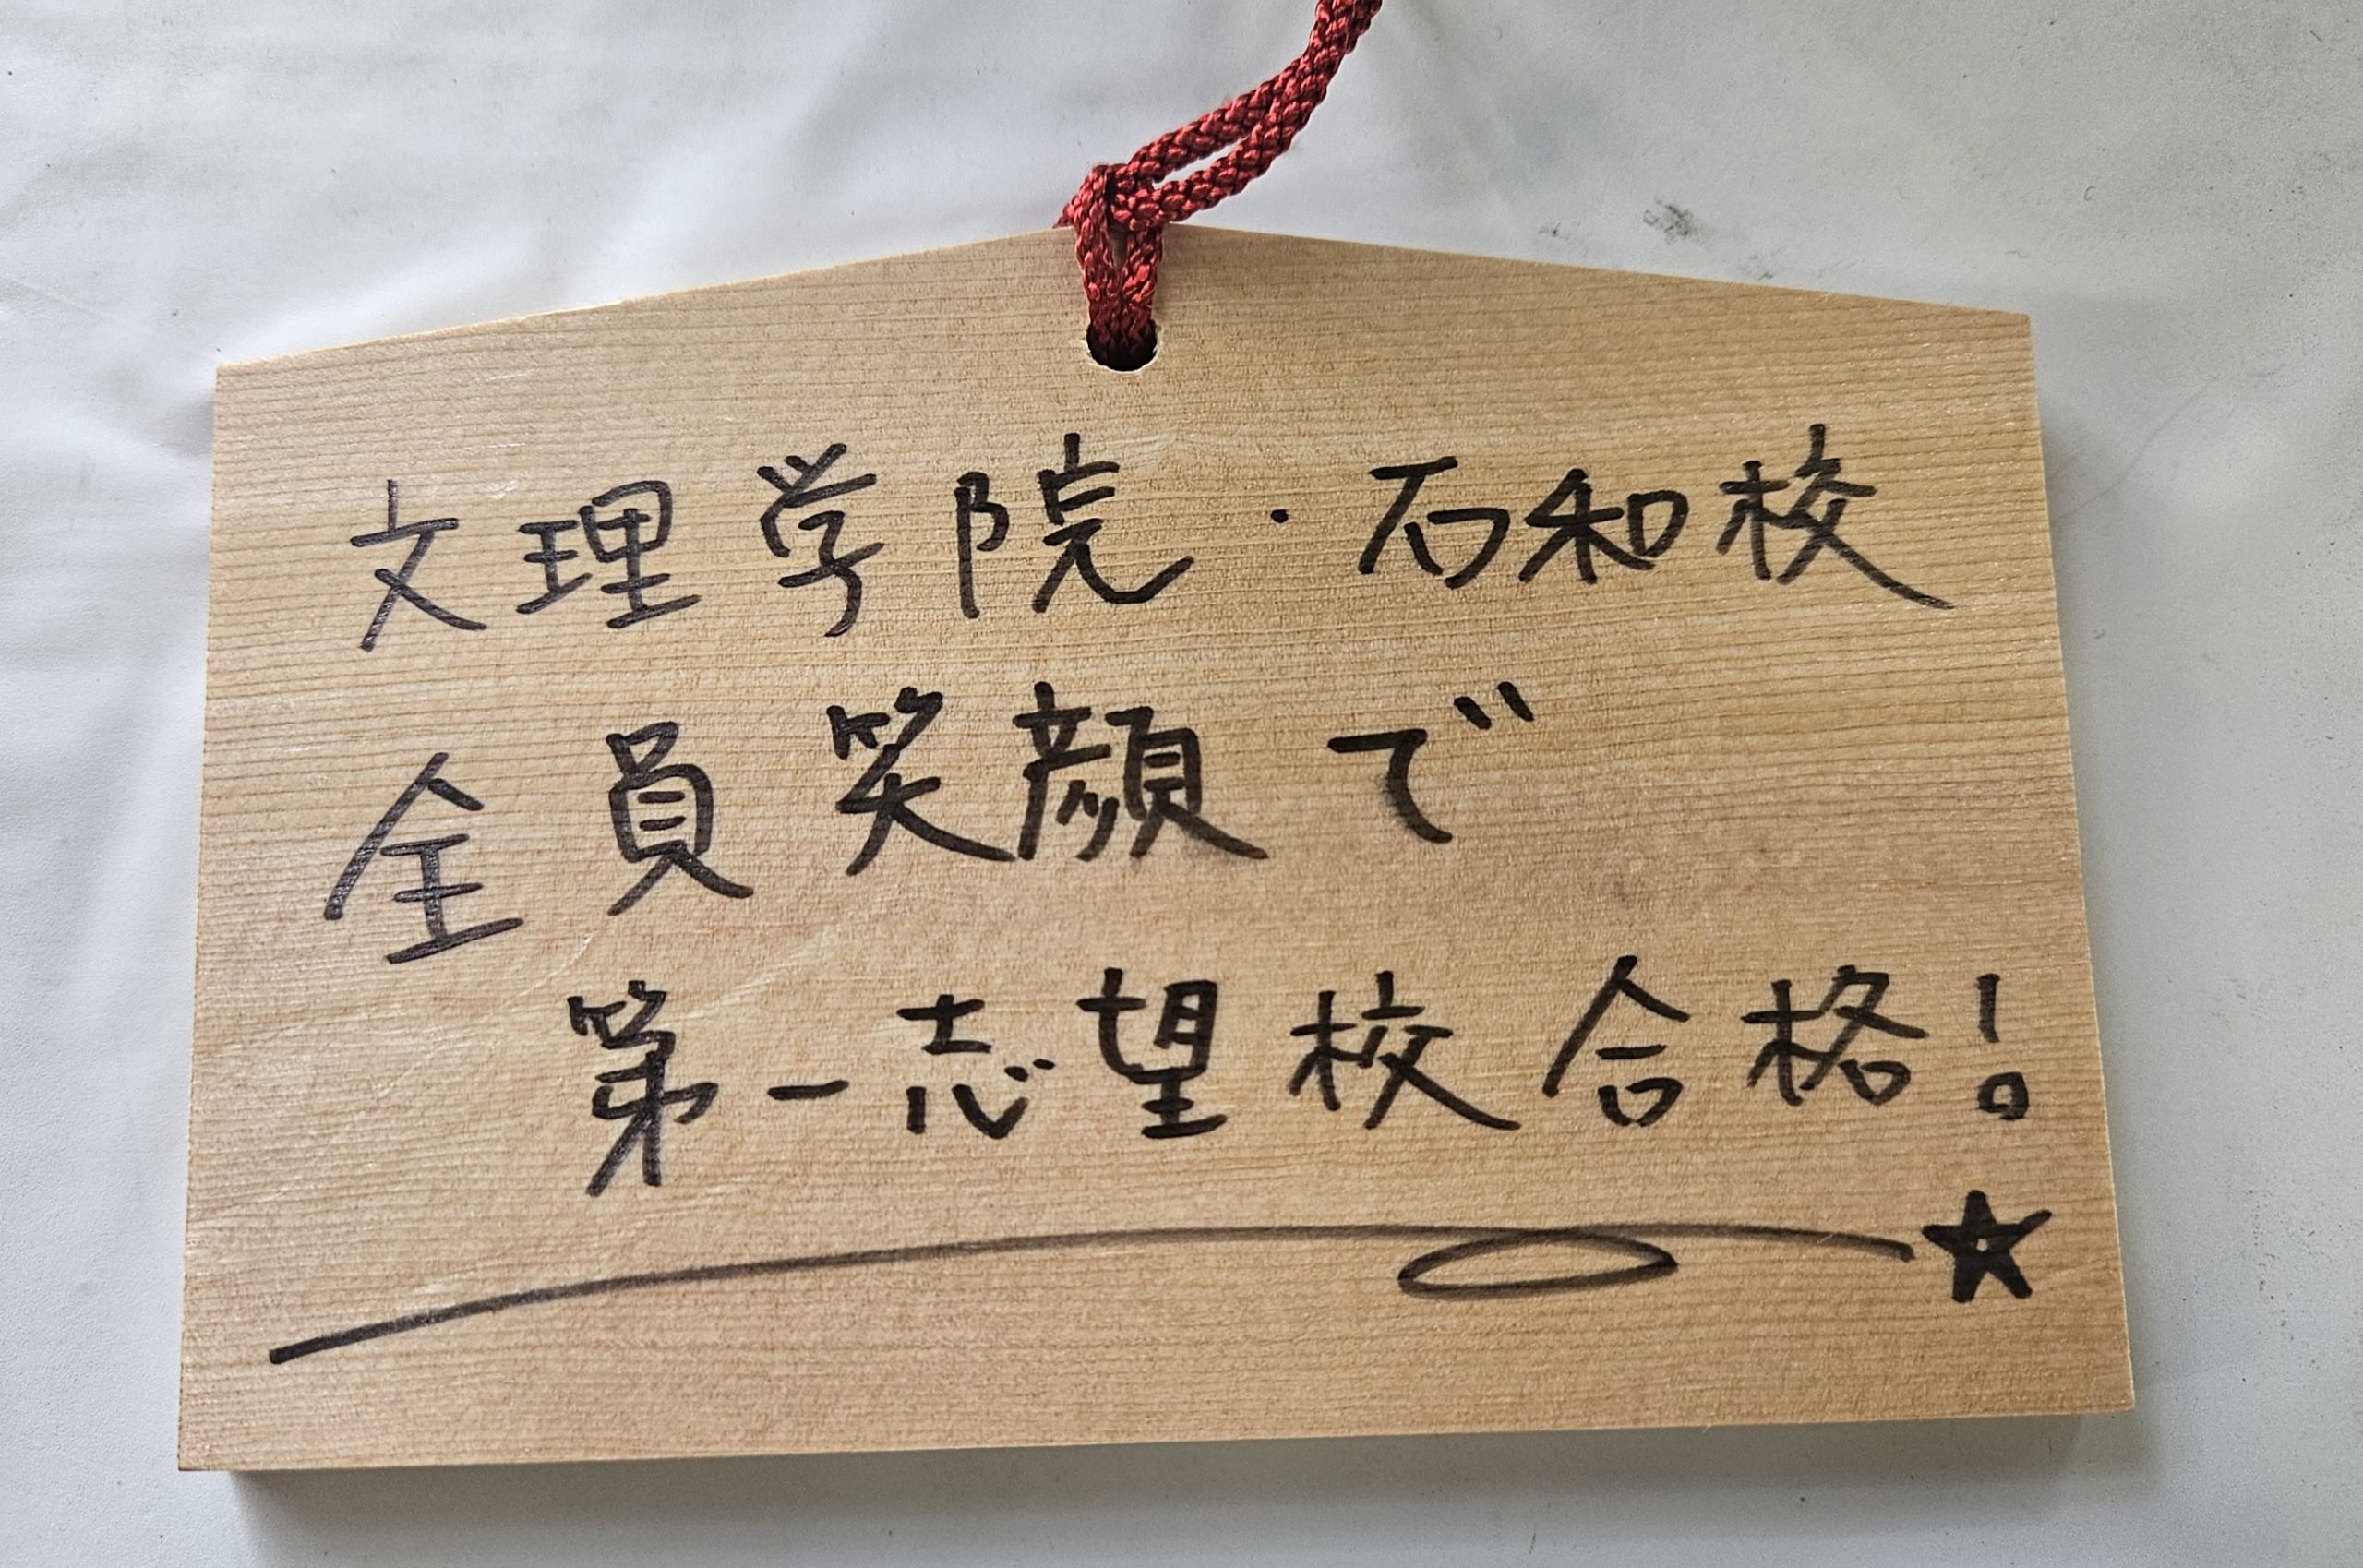 文理学院・石和校
全員笑顔で
第一志望校合格!